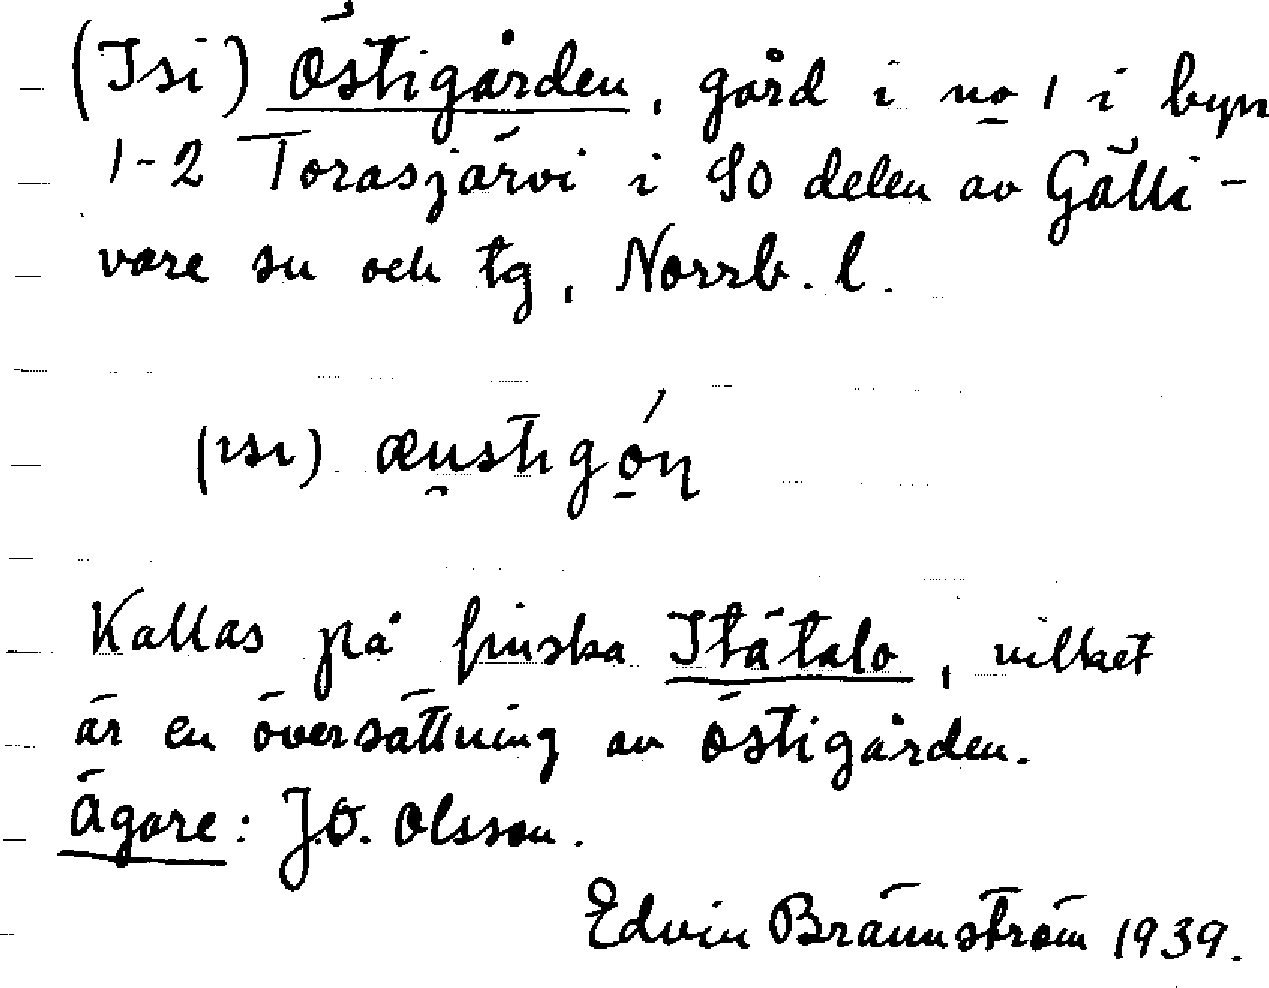 (Isi) Östigården, gård i no 1 i byn
1-2 Torasjärvi i SO delen av Gälli-
vare sn och tg, Norrb. l.
(ısı) æu̯stıgón
Kallas på finska Itätalo, vilket
är en översättning av Östigården.
Ägare: J.O. Olsson.
Edvin Brännström 1939.